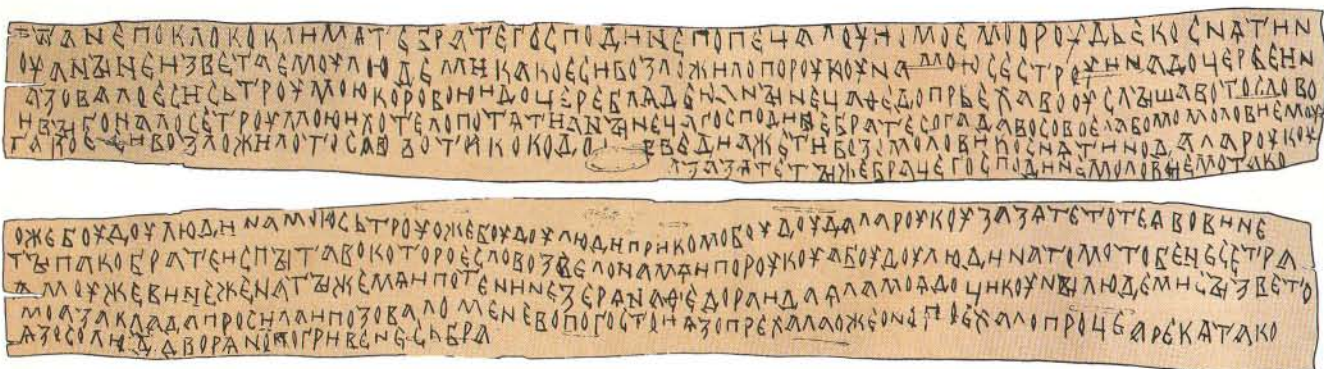 ѾАНЕПОКЛОКОКЛИМѦТЕБРАТЕГОСПОДИНЕПОПЕЦАЛОУИОМОЕМООРОУДЬЕКОСНѦТИН
ОУАНЫНЕИЗВЕТАЕМОУЛЮДЕМИКАКОЕСИВОЗЛОЖИЛОПОРОУКОУНАМОЮСЕСТРОУИНАДОЦЕРЬЕИН
АЗОВАЛОЕСИСЬТРОУМОЮКОРОВОЮИДОЦЕРЕБЛѦДЕЮАНЫНЕЦАѲЕДОПРЬЕХАВООУСЛЫШАВОТОСЛОВО
ИВЫГОНАЛОСЕТРОУМОЮИХОТЕЛОПОТѦТИАНЫНЕЦАГОСПОДИНЕБРАТЕСОГАДАВОСОВОЕЛАВОМОМОЛОВИЕМОУ
ТАКОЕСИВОЗЛОЖИЛОТОСЛОВОТАКОДОВЕДИАЖЕТИВОЗОМОЛОВИКОСНѦТИНОДАЛАРОУКОУ
ЗАЗѦТЕТЫЖЕБРАЦЕГОСПОДИНЕМОЛОВИЕМОТАКО
ОЖЕБОУДОУЛЮДИНАМОЮСЬТРОУОЖЕБОУДОУЛЮДИПРИКОМОБОУДОУДАЛАРОУКОУЗАЗѦТЕТОТЕѦВОВИНЕ
ТЫПАКОБРАТЕИСПЫТАВОКОТОРОЕСЛОВОЗВЕЛОНАМѦИПОРОУКОУАБОУДОУЛЮДИНАТОМОТОБЕНЕСЕТРА
АМОУЖЕВИНЕЖЕНАТЫЖЕМѦИПОТЕНИНЕЗЕРѦНАѲЕДОРАИДАѦЛАМОѦДОЦИКОУНЫЛЮДЕМИСЫЗВЕТО
МОАЗАКЛАДАПРОСИЛАИПОЗОВАЛОМЕНЕВОПОГОСТОИѦЗОПРЕХАЛАОЖЕОНОПОЕХАЛОПРОЦЕАРЕКАТАКО
ѦЗОСОЛЮДДВОРѦНОПОГРИВЕНЕСЬБРА